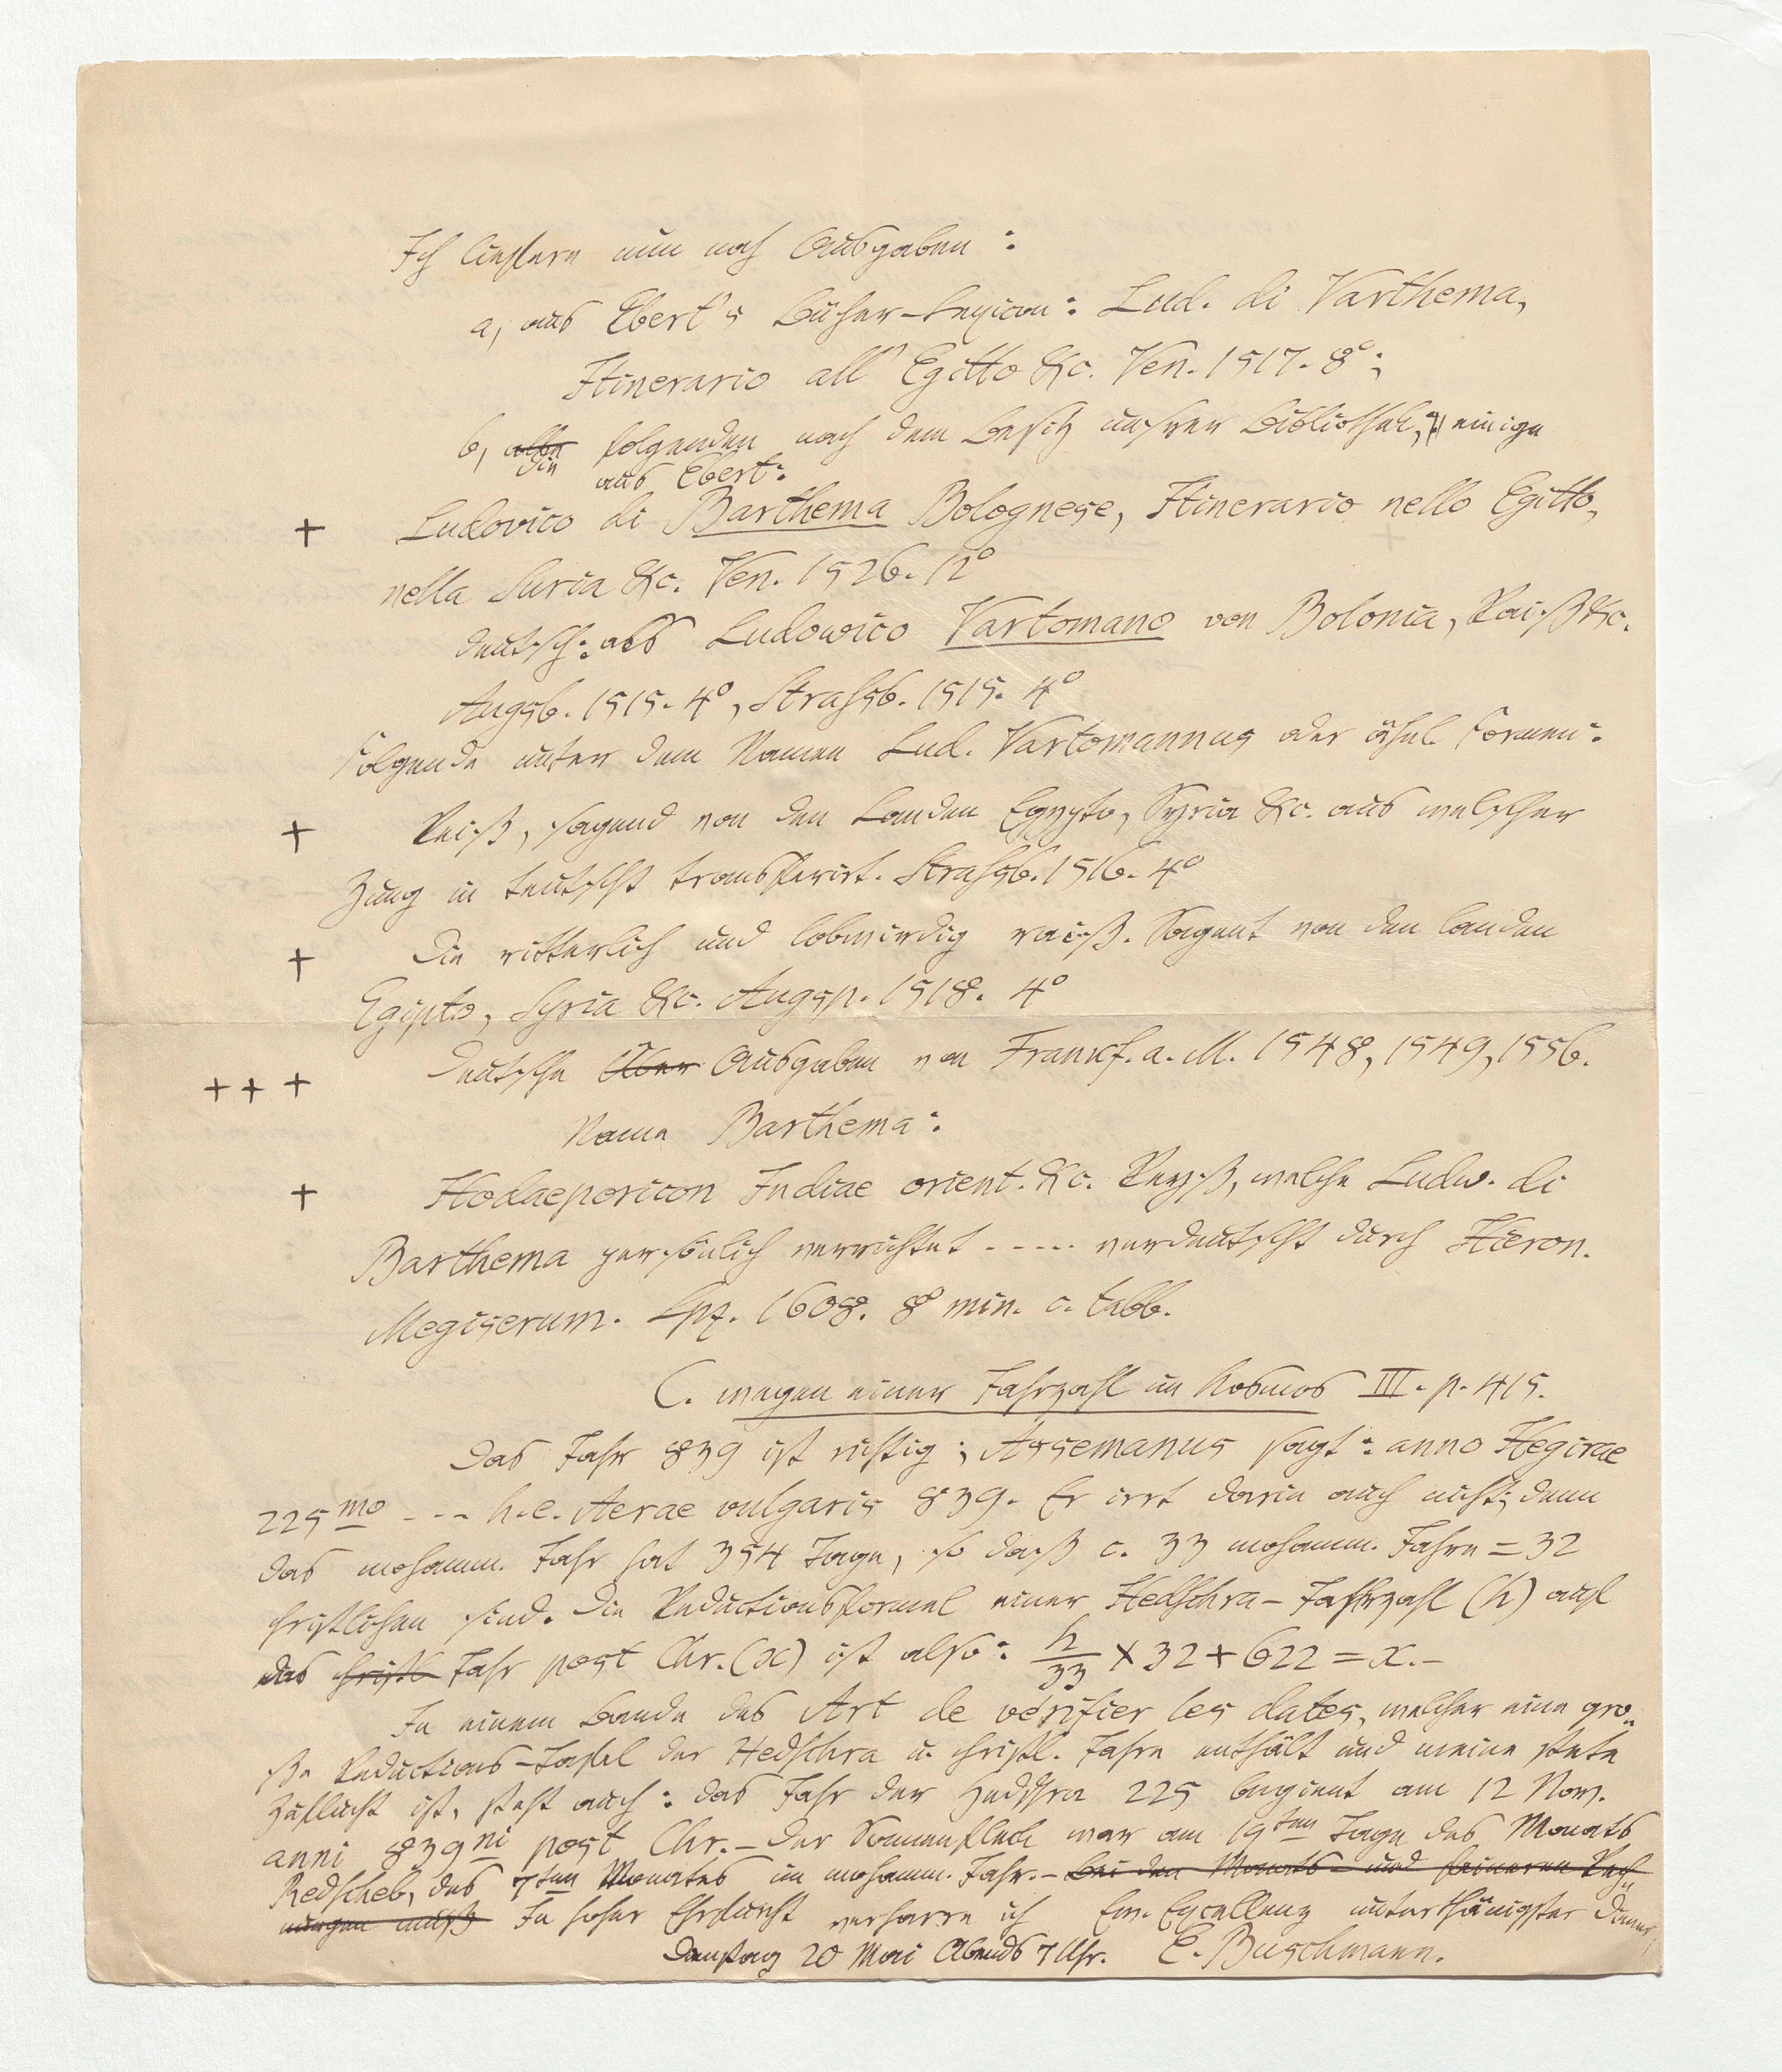 Ich liefere nun noch Ausgaben:
a, aus Ebert's Bücher-Lexicon: Lud. di Varthema,
Itinerario all' Egitto &c. Ven. 1517. 8°;
b, alle folgenden nach dem Besitz unsrer Bibliothek, einige
die aus Ebert:
+ Ludovico di Barthema Bolognese, Itinerario nello Egitto,
nella Suria &c. Ven. 1526. 12°
deutsch: als Ludowico Vartomano von Bolonia, Raiß &c.
Augsb. 1515. 4°, Strassb. 1515. 4°
Folgende unter dem Namen Lud. Vartomannus oder ähnl. Formen:
+ Reiß, sagend von den Landen Egypto, Syria &c. aus welscher
Zung in teutscht transferirt. Strassb. 1516. 4°
+ Die ritterlich und lobwirdig raiß. Sagent von den landen
Egipto, Syria &c. Augsp. 1518. 4°
+++ Deutsche Über Ausgaben von Frankf. a. M. 1548, 1549, 1556.
Name Barthema:
+ Hodaeporicon Indiae orient. &c. Reyß, welche Ludw. di
Barthema persönlich verrichtet ..... verdeutscht durch Hieron.
Megiserum. Lpz. 1608. 8° min. c. tabb.
C. wegen einer Jahrzahl im Kosmos III. p. 415.
Das Jahr 839 ist richtig; Assemanus sagt: anno Hegirae
225mo --- h.e. Aerae vulgaris 839. Er irrt darin auch nicht; denn
das mohamm. Jahr hat 354 Tage, so daß c. 33 mohamm. Jahre = 32
christlichen sind. Die Reductionsformel einer Hedschra-Jahrzahl (h) auf
das christl Jahr post Chr. (x) ist also: h/33 × 32 + 622 = x.–
In einem Bande des Art de vérifier les dates, welcher eine gro-
ße Reductions-Tafel der Hedschra u. christl. Jahre enthält und meine stete
Zuflucht ist, steht auch: das Jahr der Hedschra 225 beginnt am 12 Nov.
anni 839ni post Chr.– Der Sonnenfleck war am 19ten Tage des Monats
Redscheb, des 7ten Monates im mohamm. Jahr.– Bei den Monats- und feineren Rech-
nungen muß In hoher Ehrfurcht verharre ich Ew. Excellenz unterthänigster Diener
Dienstag 20 Mai Abends 7 Uhr. E. Buschmann.